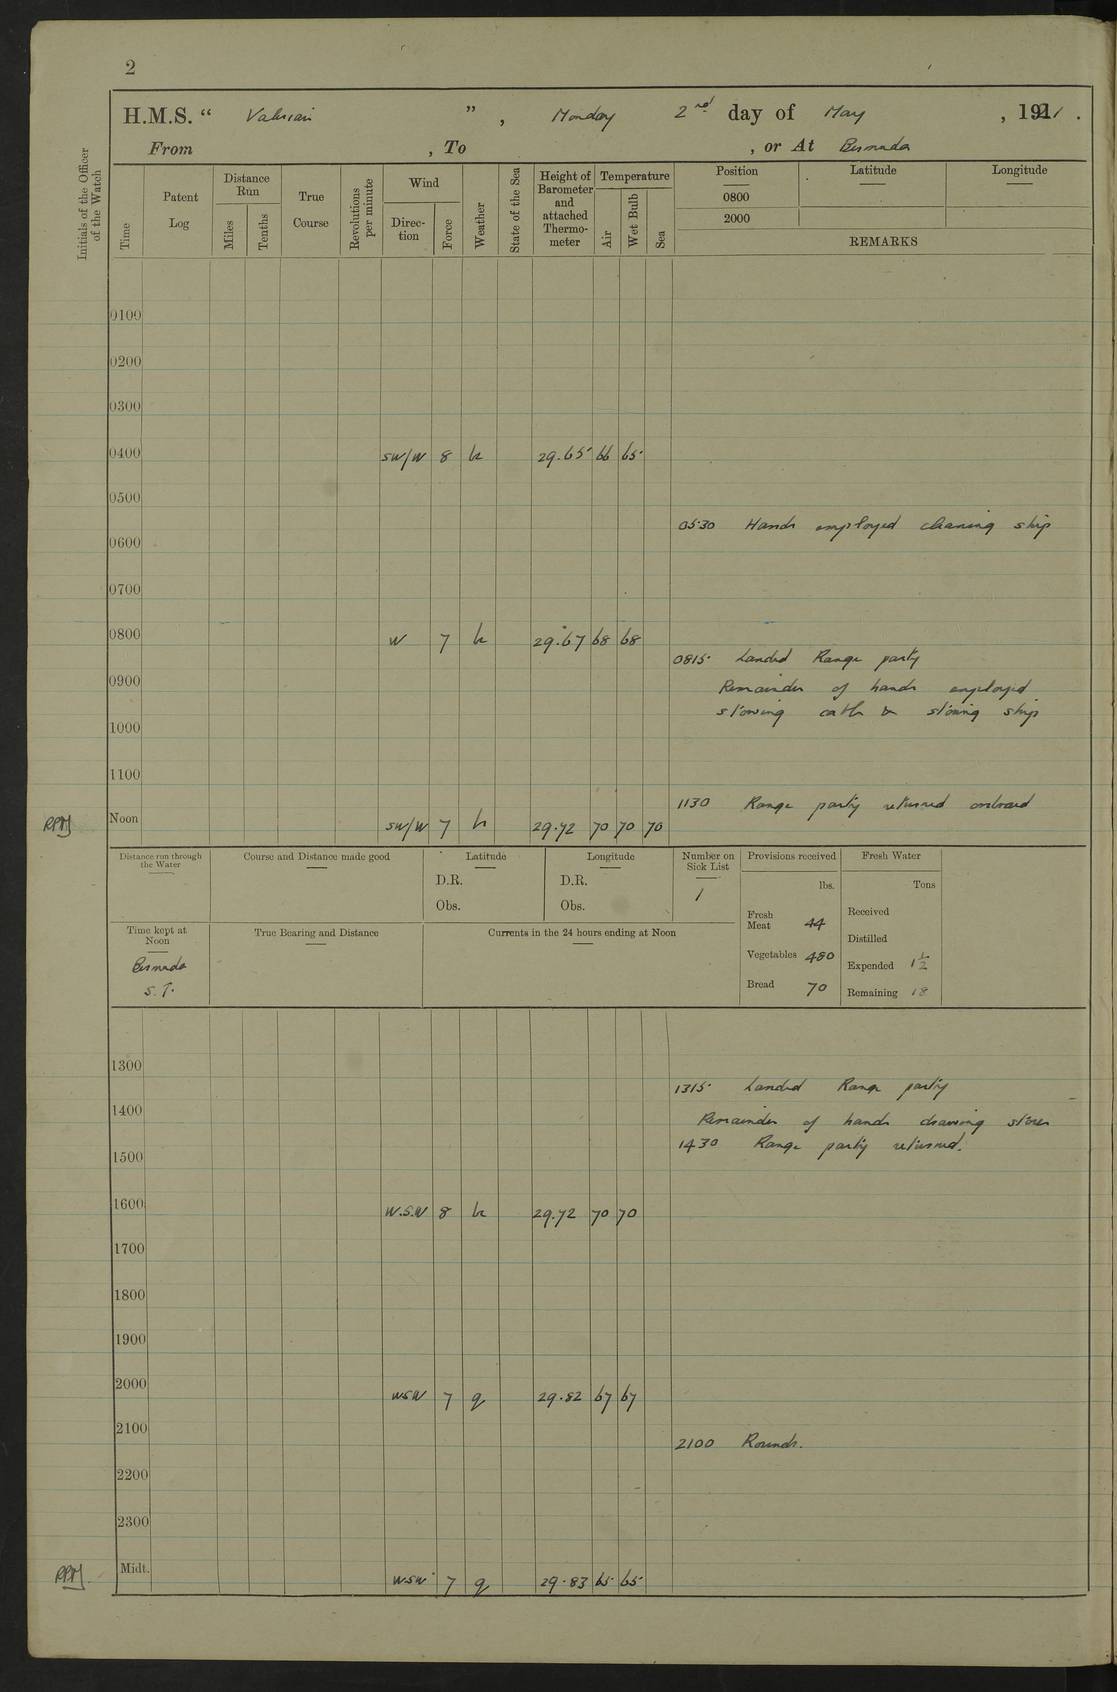 2
H.M.S. “ Valerian ” , Monday 2nd day of May , 1921 .
From , To , or At Bermuda
Initials of the Officer of the Watch
Time
Patent Log
Distance Run
Miles
Tenths
True Course
Revolutions per minute
Wind
Direction
Force
Weather
State of the Sea
Height of Barometer and attached Thermometer
Temperature
Air
Wet Bulb
Sea
Position Latitude Longitude
0800
2000
REMARKS
0100
0200
0300
0400 SW/W 8 29.65 66 65
0500
0530 Hands employed cleaning ship
0600
0700
0800 W 7 29.67 68 68
0815 Landed Range party
0900 Remainder of hands employed
stowing & stoning ship
1000
1100
1130 Range party returned onboard
Noon SW/W 7 29.72 70 70 70
Distance run through the Water
Course and Distance made good
Latitude
D.R.
Obs.
Longitude
D.R.
Obs.
Number on Sick List
1
Provisions received
lbs.
Fresh Meat 44
Vegetables 480
Bread 70
Fresh Water
Tons
Received
Distilled
Expended 1½
Remaining 18
Time kept at Noon
Bermuda
S.T.
True Bearing and Distance
Currents in the 24 hours ending at Noon
1300
1315 Landed Range party
1400
Remainder of hands drawing stores
1430 Range party returned.
1500
1600 W.S.W 8 29.72 70 70
1700
1800
1900
2000 WSW 7 q 29.82 67 67
2100
2100 Rounds.
2200
2300
Midt. WSW 7 q 29.83 65 65